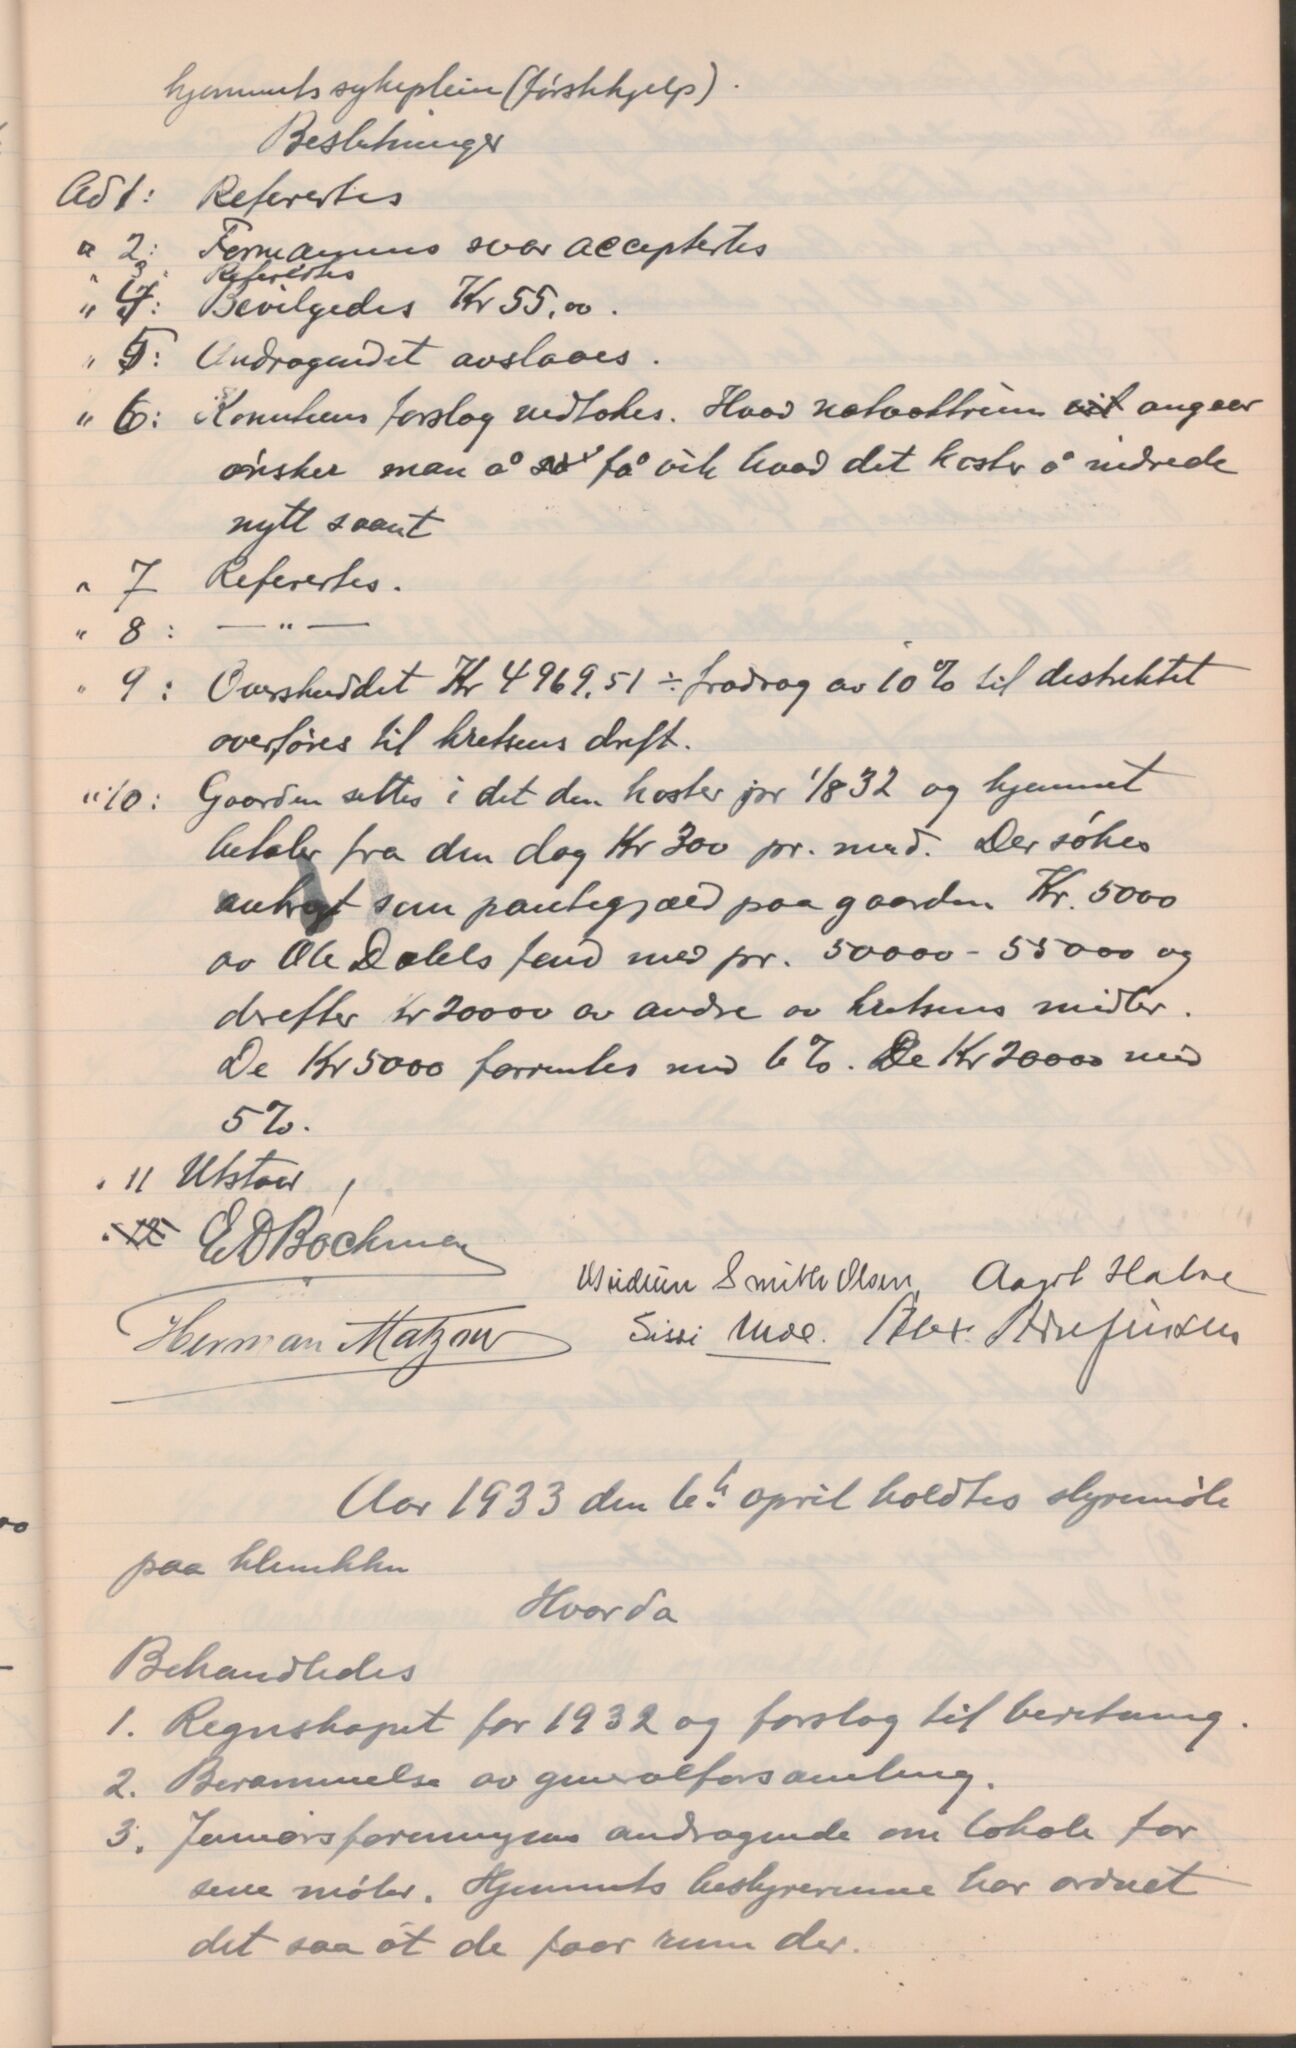 hjemmets sykepleie (förstehjelp).
Beslutninger
Ad 1: Refereertes
" 2: Formannens svar acceptertes
" 3: Refereertes
" 4: Bevilgedes Kr 55,00.
" 5: Andragendet avslaaes.
" 6: Komiteens forslag vedtokes. Hvad angaar
ønsker man å få vite hvad det koster å indrede
nytt saant
" 7 Refereertes.
" 8: — " —
" 9: Overskuddet Kr 4969,51 ÷ fradrag av 10% til distriktet
overføres til kretsens drift.
" 10: Gaarden settes i det den koster pr 1/8 32 og hjemmet
betaler fra den dag Kr 300 pr. mnd. Der søkes
anbragt som pantegjæld paa gaarden Kr. 5000
av Ole Dahls fond med pr. 50000 - 55000 og
derefter kr 20000 av andre av kretsens midler.
De Kr 5000 forrentes med 6%. De Kr 20000 med
5%.
" 11 Utstaar
E D Bøckman
Smith Olsen, Aagot Halse
Herman Matzow Sissi Moe. Alex.
Aar 1933 den 6te april holdtes styremöte
paa klinikken
Hvorda
Behandledes
1. Regnskapet for 1932 og forslag til beretning.
2. Berammelse av generalforsamling.
3. Juniorsforeningens andragende om lokale for
sine möter. Hjemmets bestyrerinne har ordnet
det saa at de faar rum der.